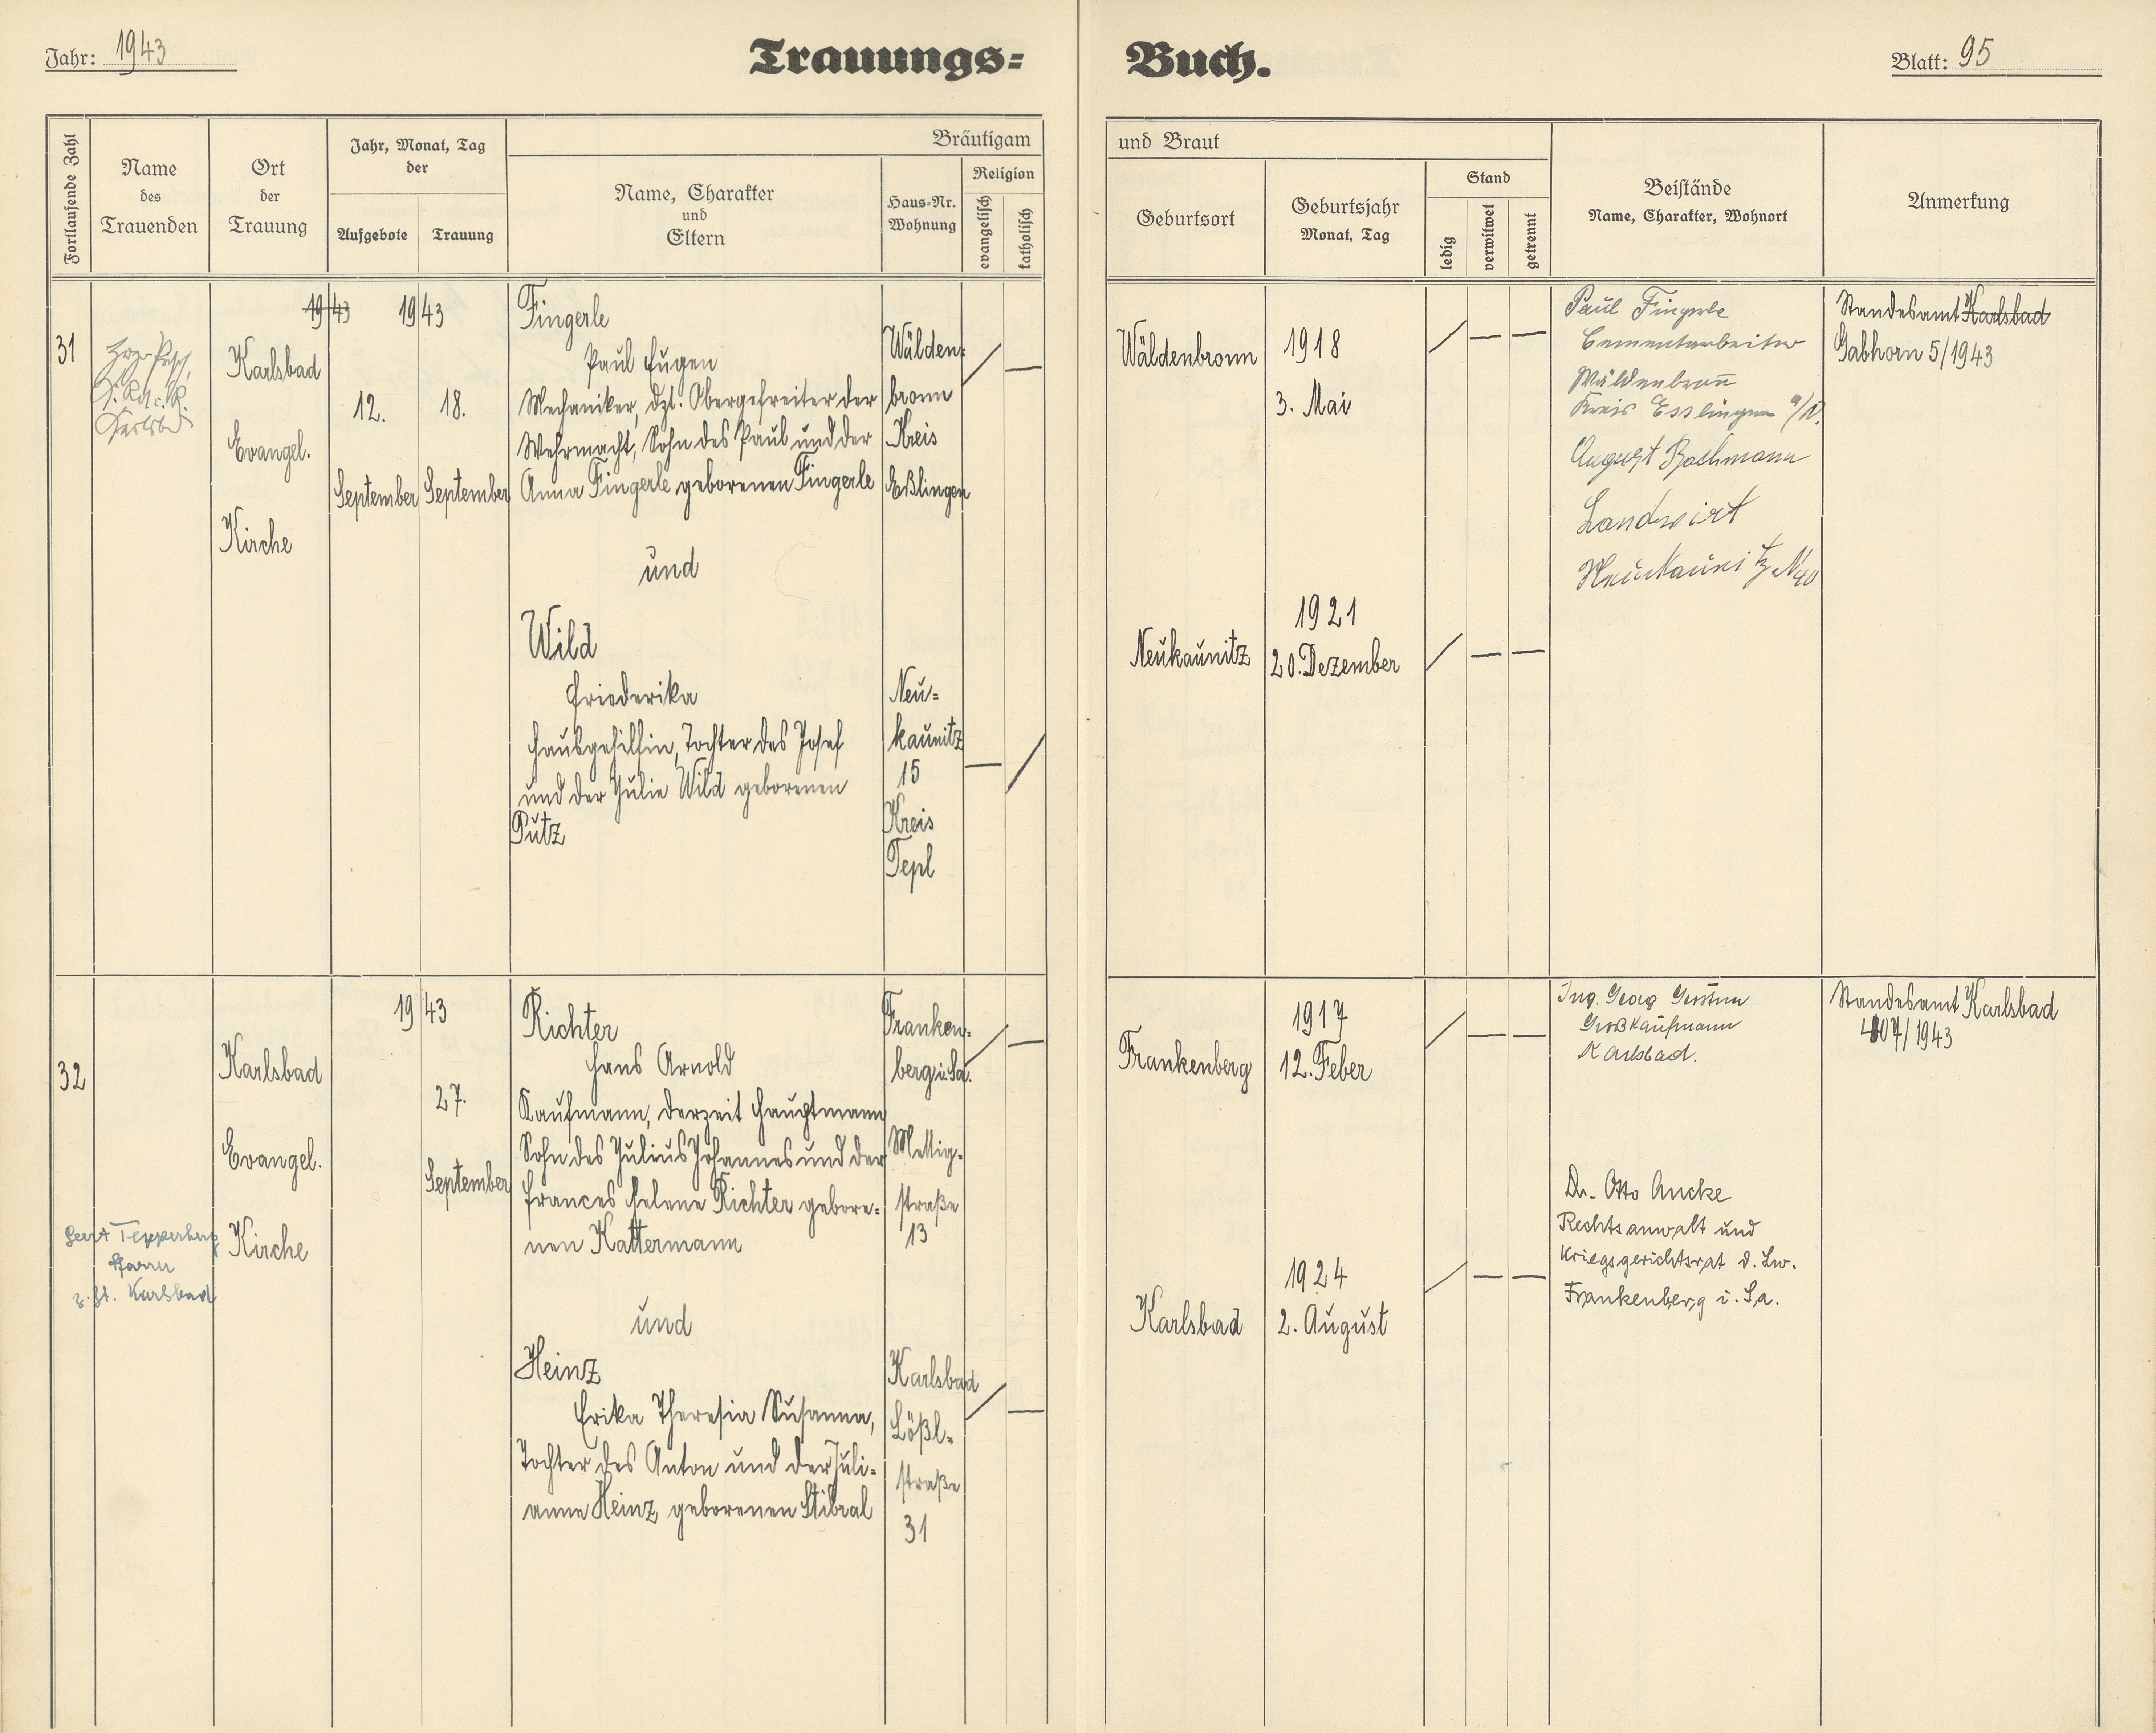 Jahr: 1943
Trauungs=
Buch.
Blatt: 95
Fortlaufende Zahl
Name
des
Trauenden
Ort
der
Trauung
Jahr, Monat, Tag
der
Aufgebote
Trauung
Bräutigam
Name, Charakter
und
Eltern
Haus=Nr.
Wohnung
Religion
evangelisch
katholisch
und Braut
Geburtsort
Geburtsjahr
Monat, Tag
Stand
ledig
verwitwet
getrennt
Beistände
Name, Charakter, Wohnort
Anmerkung
31
Karlsbad
Evangel.
Kirche
1943
12.
September
1943
18.
September
Fingerle
Paul Eugen
Mechaniker, dzt. Obergefreiter der
Wehrmacht, Sohn des Paul und der
Anna Fingerle geborenen Fingerle
Wälden=
bronn
Kreis
Eßlingen
und
Wild
Friederika
Hausgehilfin, Tochter des Josef
und der Julie Wild geborenen
Pütz
Neu=
kaunitz
15
Kreis
Tepl
Wäldenbronn
1918
3. Mai
Neukaunitz
1921
20. Dezember
Paul Fingerle
Cementarbeiter
Wäldenbronn
Kreis Esslingen a/N.
August Bachmann
Landwirt
Neukaunitz N 40
Standesamt Karlsbad
Gabhorn 5/1943
32
Geert Tepperberg
Pfarrer
z. Zt. Karlsbad
Karlsbad
Evangel.
Kirche
1943
27.
September
Richter
Hans Arnold
Kaufmann, derzeit Hauptmann
Sohn des Julius Johannes und der
Frances Helene Richter gebore=
nen Kattermann
Franken=
berg i. Sa.
Mettig-
straße
13
und
Heinz
Erika Theresia Susanna,
Tochter des Anton und der Juli=
anne Heinz geborenen Stibral
Karlsbad
Lößl=
straße
31
Frankenberg
1917
12. Feber
Karlsbad
1924
2. August
Ing. Georg
Großkaufmann
Karlsbad.
Dr. Otto Ancke
Rechtsanwalt und
Kriegsgerichtsrat d. Lw.
Frankenberg i. Sa.
Standesamt Karlsbad
407/1943